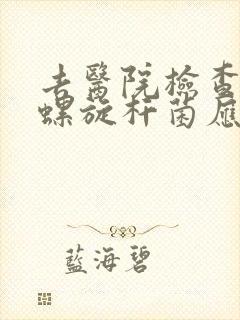 去醫院檢查
螺旋杆菌應
藍海碧